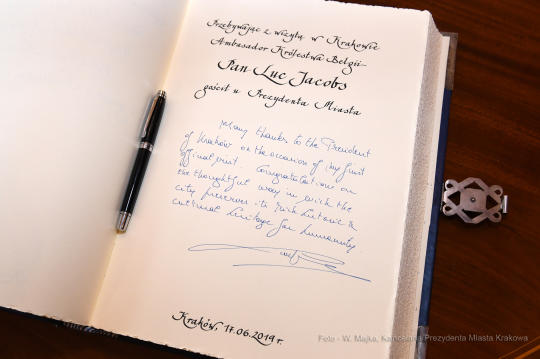 Przebywając z wizytą w Krakowie
Ambasador Królestwa Belgii
Pan Luc Jacobs
gościł u Prezydenta Miasta
Many thanks to the President
of Kraków on the occasion of my first
official visit. Congratulations on
the thoughtful way in which the
city preserves its rich historic &
cultural heritage for humanity
Kraków, 17.06.2019 r.
Foto - W. Majka, Kancelaria Prezydenta Miasta Krakowa